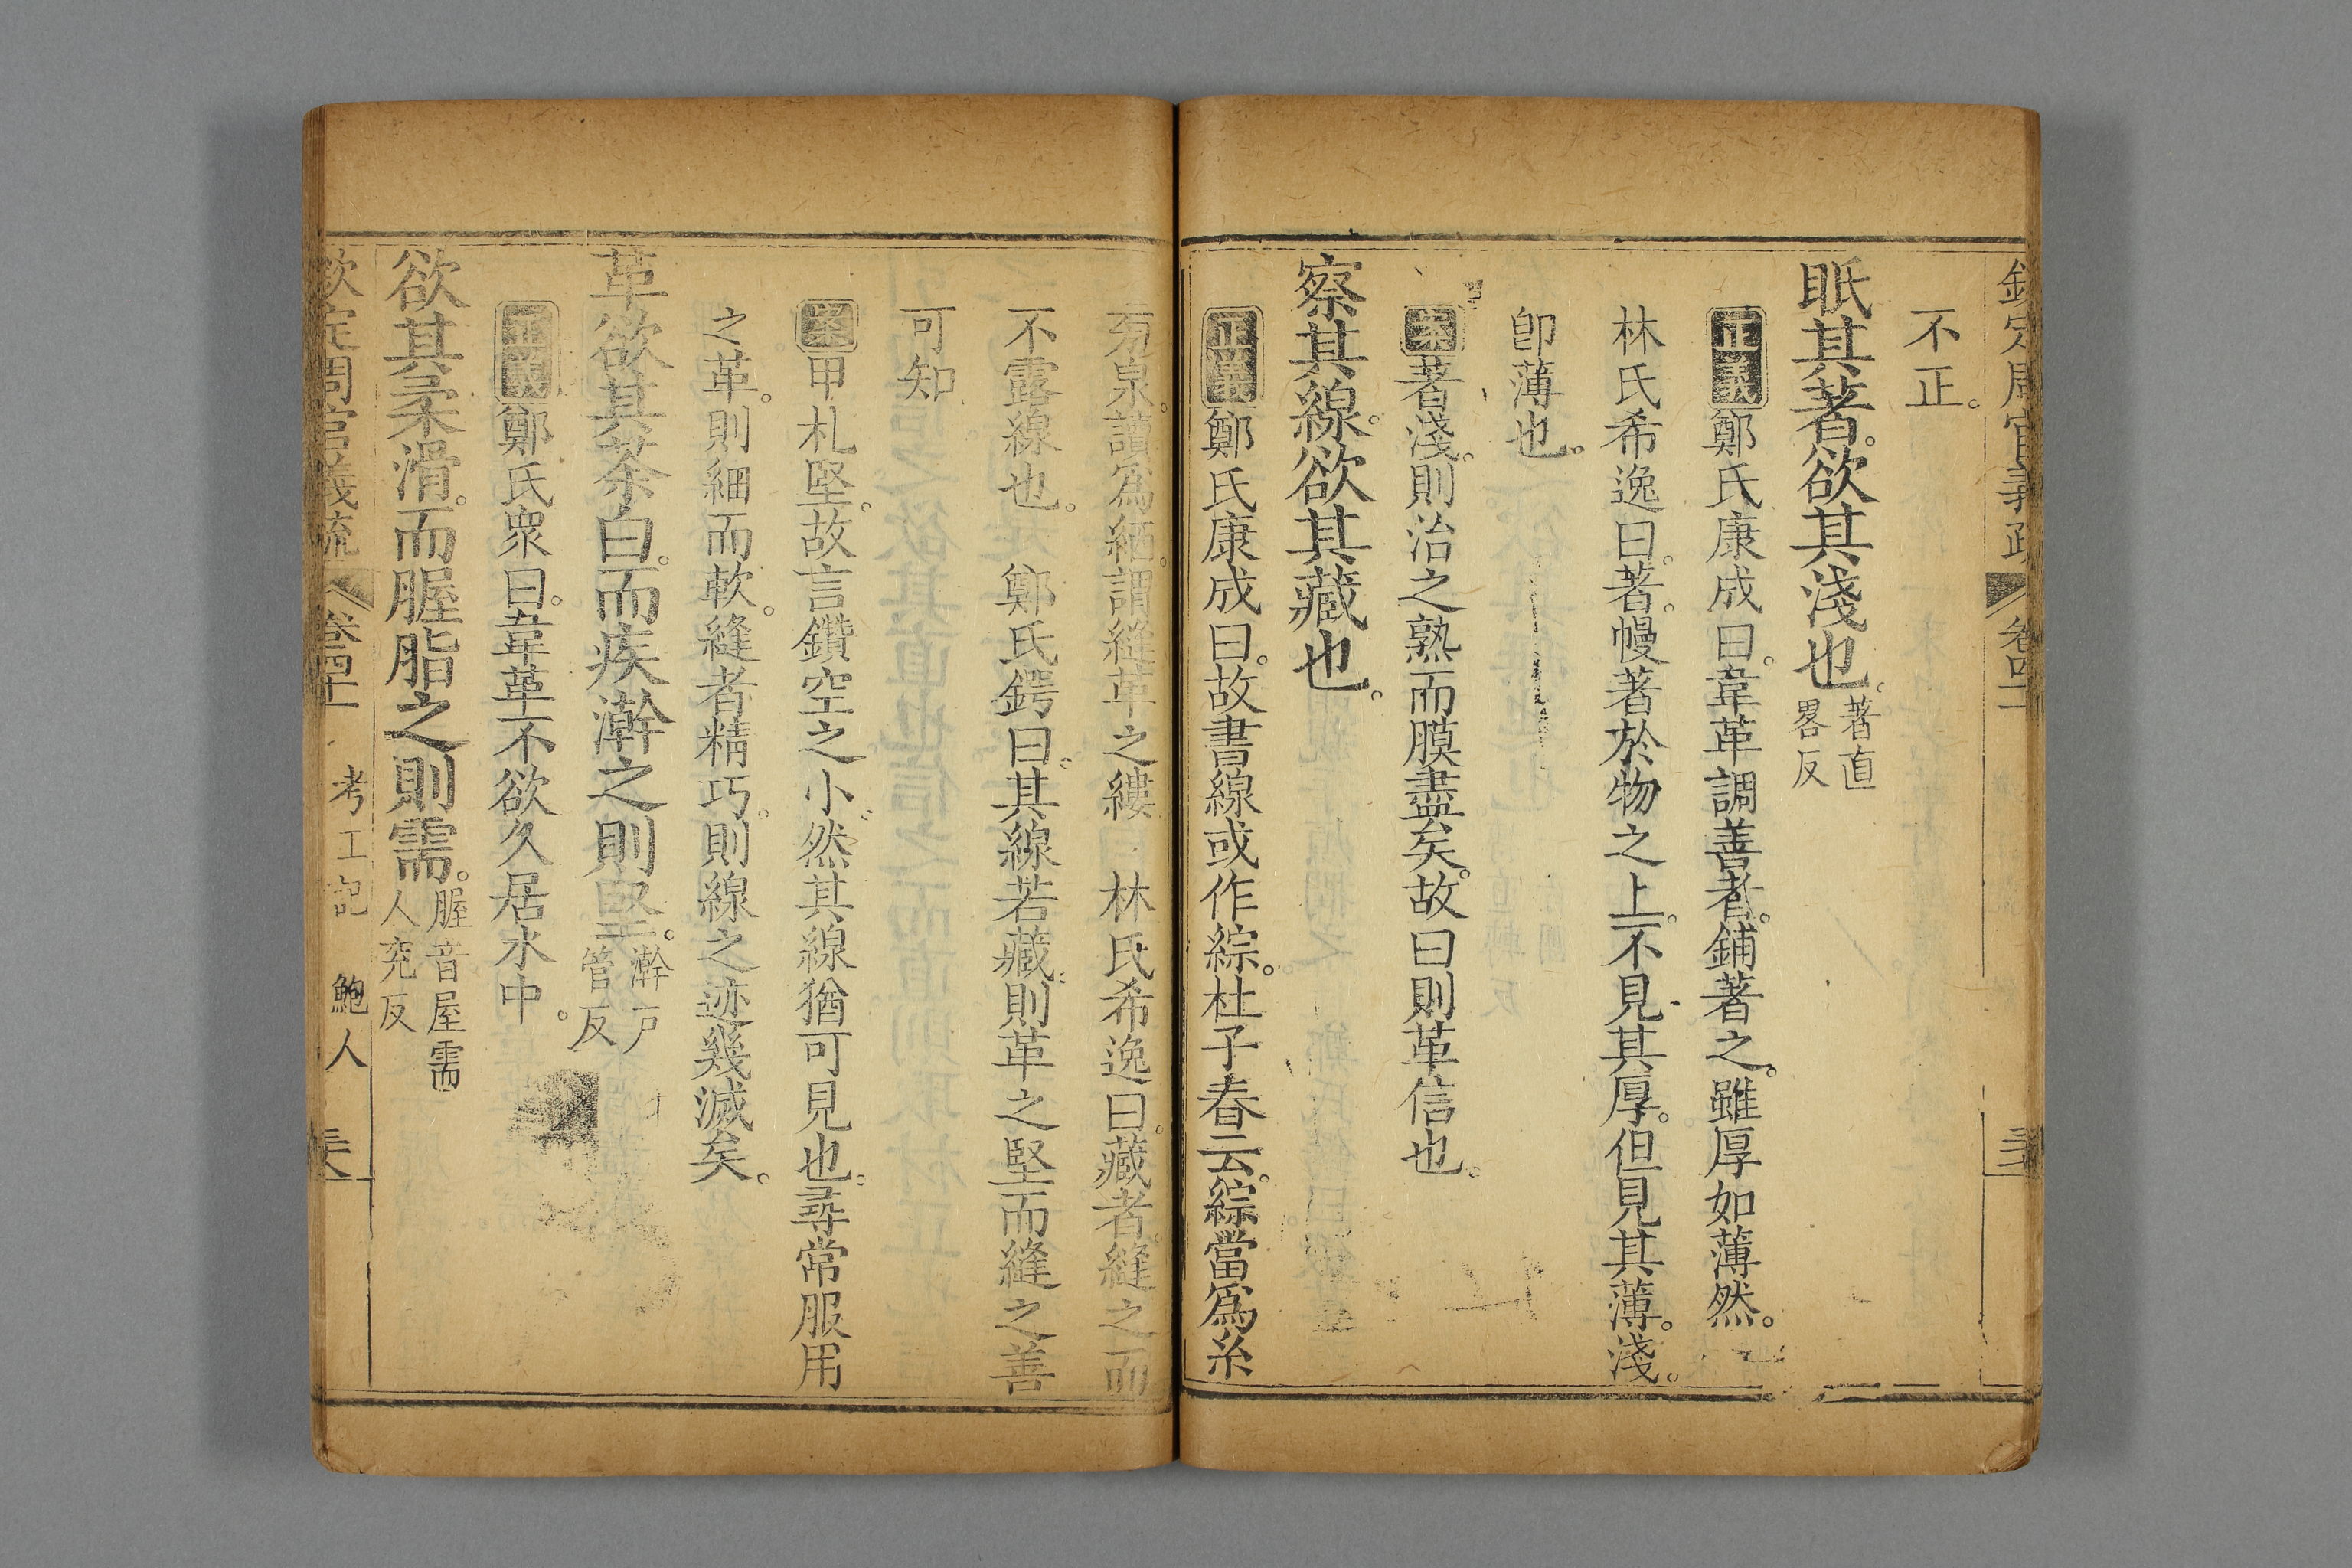 欽定周官義疏 卷四十一
不正。
眂其著。欲其淺也。著直畧反
正義鄭氏康成曰。韋革調善者。鋪著之。雖厚如薄然。
林氏希逸曰。著。幔著於物之上。不見其厚。但見其薄。淺。
卽薄也。
案著淺。則治之熟而膜盡矣。故曰則革信也。
察其線。欲其藏也。
正義鄭氏康成曰。故書線或作綜。杜子春云。綜當爲糸
旁泉。讀爲絤。謂縫革之縷 林氏希逸曰。藏者。縫之而
不露線也。 鄭氏鍔曰。其線若藏。則革之堅而縫之善
可知
案甲札堅。故言鑽空之小。然其線猶可見也。尋常服用
之革。則細而軟。縫者精巧。則線之迹幾滅矣。
革欲其荼白。而疾澣之則堅。澣戸管反
正義鄭氏衆曰。韋革不欲久居水中。
欲其柔滑。而腛脂之則需。腛音屋需人兖反
欽定周官義疏 卷四十一 考工記 鮑人